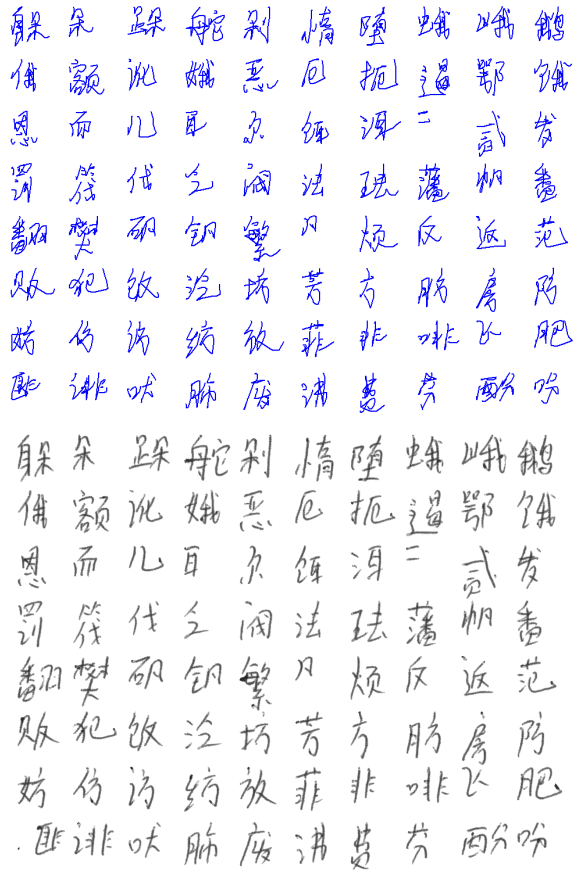 躲 朵 跺 舵 剁 惰 堕 蛾 峨 鹅
俄 额 讹 娥 恶 厄 扼 遏 鄂 饿
恩 而 儿 耳 尔 饵 洱 二 贰 发
罚 筏 伐 乏 阀 法 珐 藩 帆 番
翻 樊 矾 钒 繁 凡 烦 反 返 范
贩 犯 饭 泛 坊 芳 方 肪 房 防
妨 仿 访 纺 放 菲 非 啡 飞 肥
匪 诽 吠 肺 废 沸 费 芬 酚 吩
躲 朵 跺 舵 剁 惰 堕 蛾 峨 鹅
俄 额 讹 娥 恶 厄 扼 遏 鄂 饿
恩 而 儿 耳 尔 饵 洱 二 贰 发
罚 筏 伐 乏 阀 法 珐 藩 帆 番
翻 樊 矾 钒 繁 凡 烦 反 返 范
贩 犯 饭 泛 坊 芳 方 肪 房 防
妨 仿 访 纺 放 菲 非 啡 飞 肥
匪 诽 吠 肺 废 沸 费 芬 酚 吩